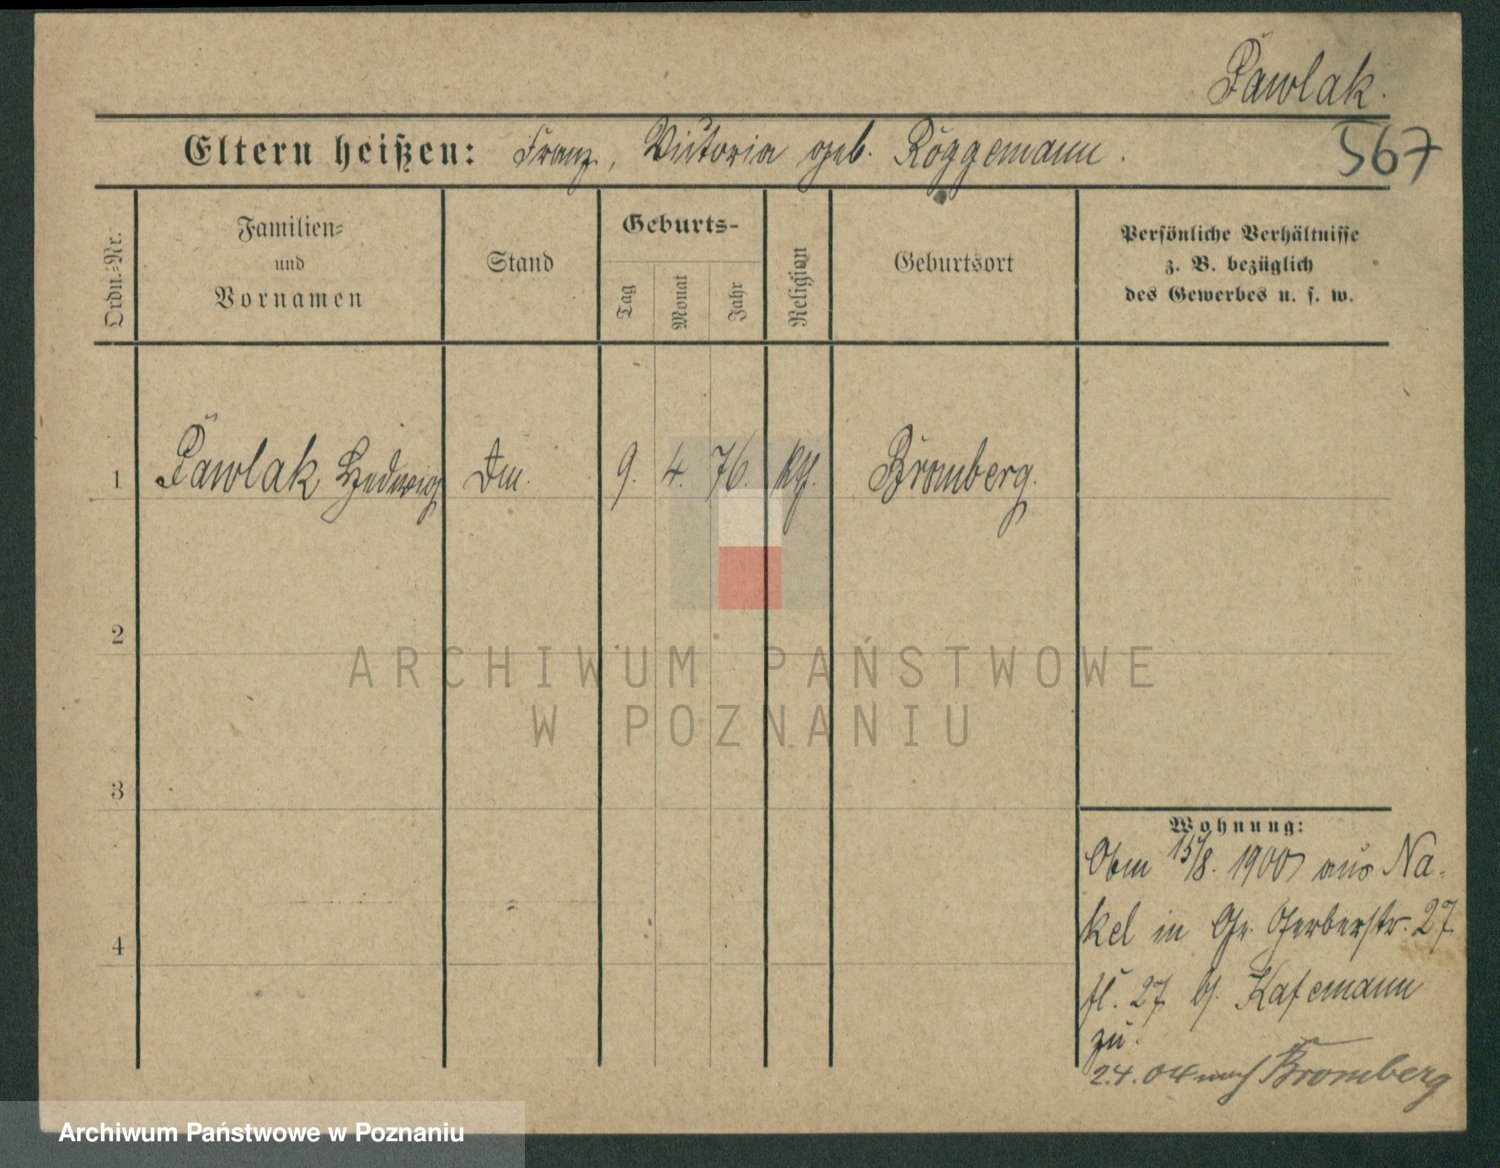 Pawlak.
Eltern heißen: Franz, Victoria geb. Röggemann.
567
Ordn.=Nr.
Familien=
und
Vornamen
Stand
Geburts-
Tag
Monat
Jahr
Religion
Geburtsort
Persönliche Verhältnisse
z. B. bezüglich
des Gewerbes u. s. w.
1 Pawlak Hedwig Dm. 9. 4. 76. kth. Bromberg.
2
ARCHIWUM PAŃSTWOWE
W POZNANIU
3
Wohnung:
15/8. 1900 aus Na=
kel in Gr. Gerberstr. 27
fl. 27 b. Kafemann
zu.
2.4.04 nach Bromberg
4
Archiwum Państwowe w Poznaniu